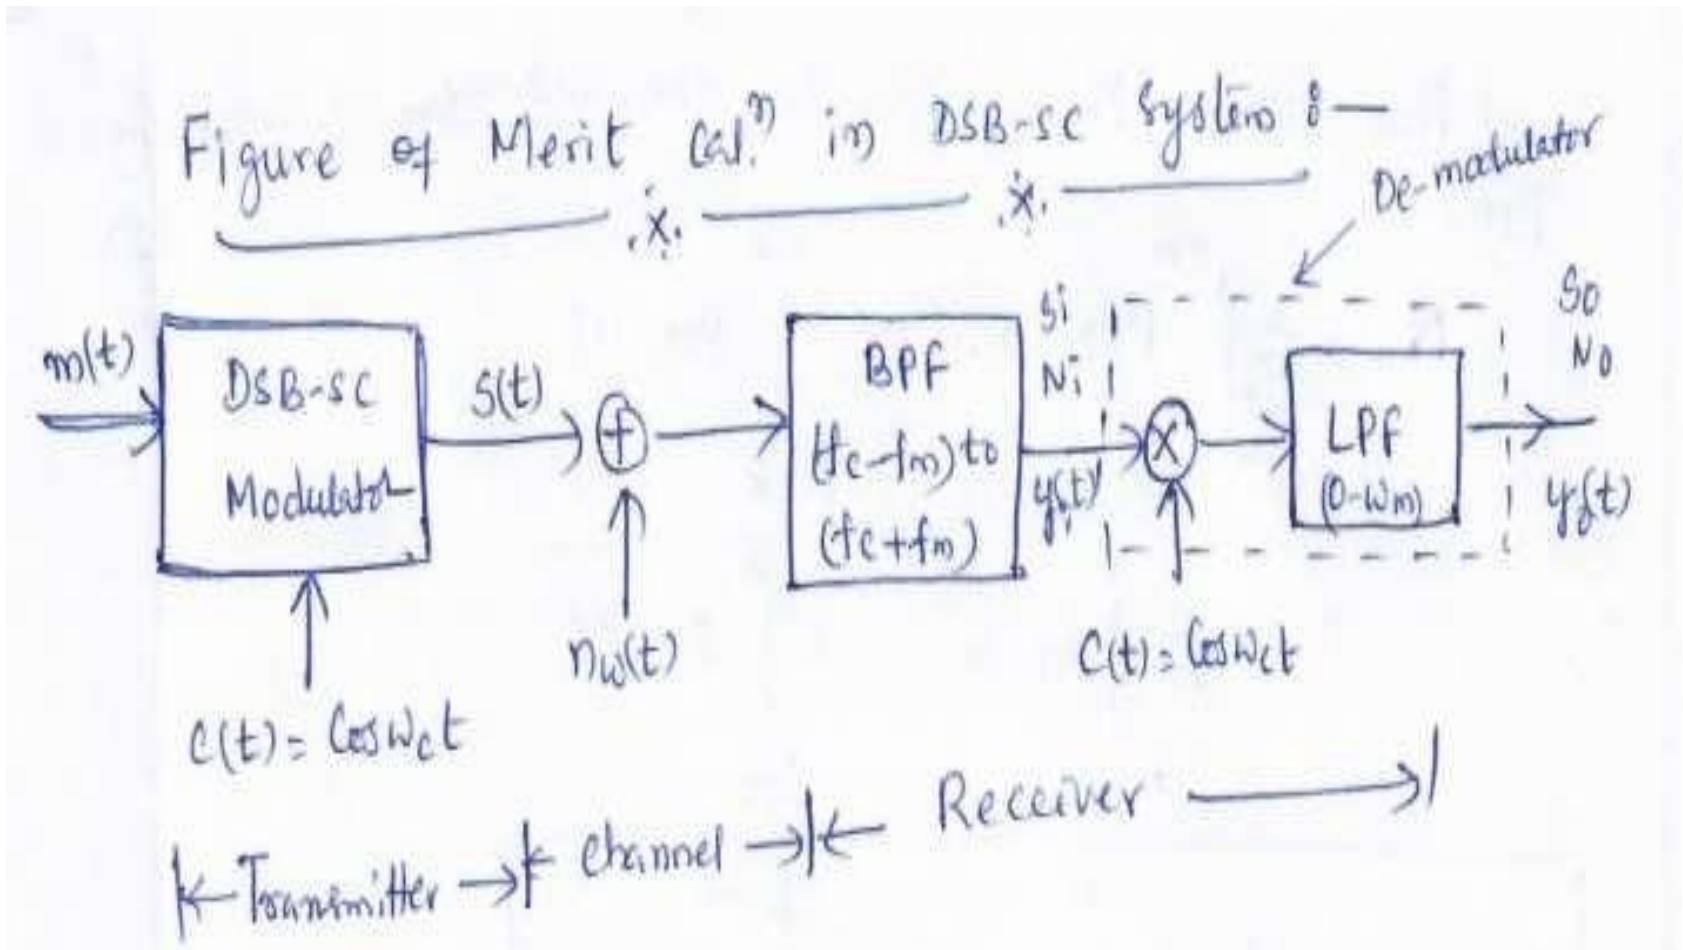 Figure of Merit Cal.ⁿ in DSB-SC System :—
De-modulator
m(t)
DSB-SC
Modulator
S(t)
+
n_w(t)
C(t) = Cosω_c t
BPF
(fc-fm) to
(fc+fm)
Si
Ni
y(t)
X
C(t) = Cosω_c t
LPF
(0-ω_m)
So
No
Transmitter
Channel
Receiver